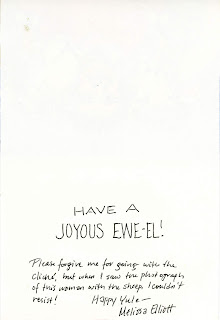 HAVE A
JOYOUS EWE-EL!
Please forgive me for going with the
cliché, but when I saw the photograph
of this woman with the sheep I couldn't
resist! Happy Yule—
Melissa Elliott